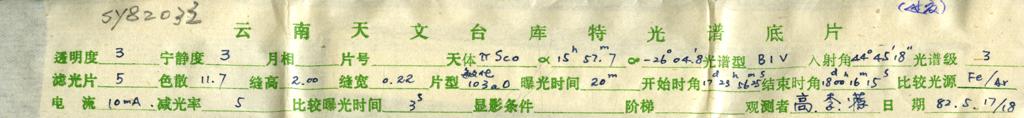 SY82033
云南天文台库特光谱底片
透明度 3 宁静度 3 月相 片号 天体 π Sco α 15ʰ 57.ᵐ7 α -26°04.'8 光谱型 B1V 入射角 44°45'18" 光谱级 3
滤光片 5 色散 11.7 缝高 2.00 缝宽 0.22 片型 103aO 曝光时间 20ᵐ 开始时角 17ᵈ23ʰ56ᵐ25ˢ 结束时角 18ᵈ00ʰ16ᵐ15ˢ 比较光源 Fe/Ar
电流 10mA. 减光率 5 比较曝光时间 3ˢ 显影条件 阶梯 观测者 高. 季. 日期 82.5.17/18